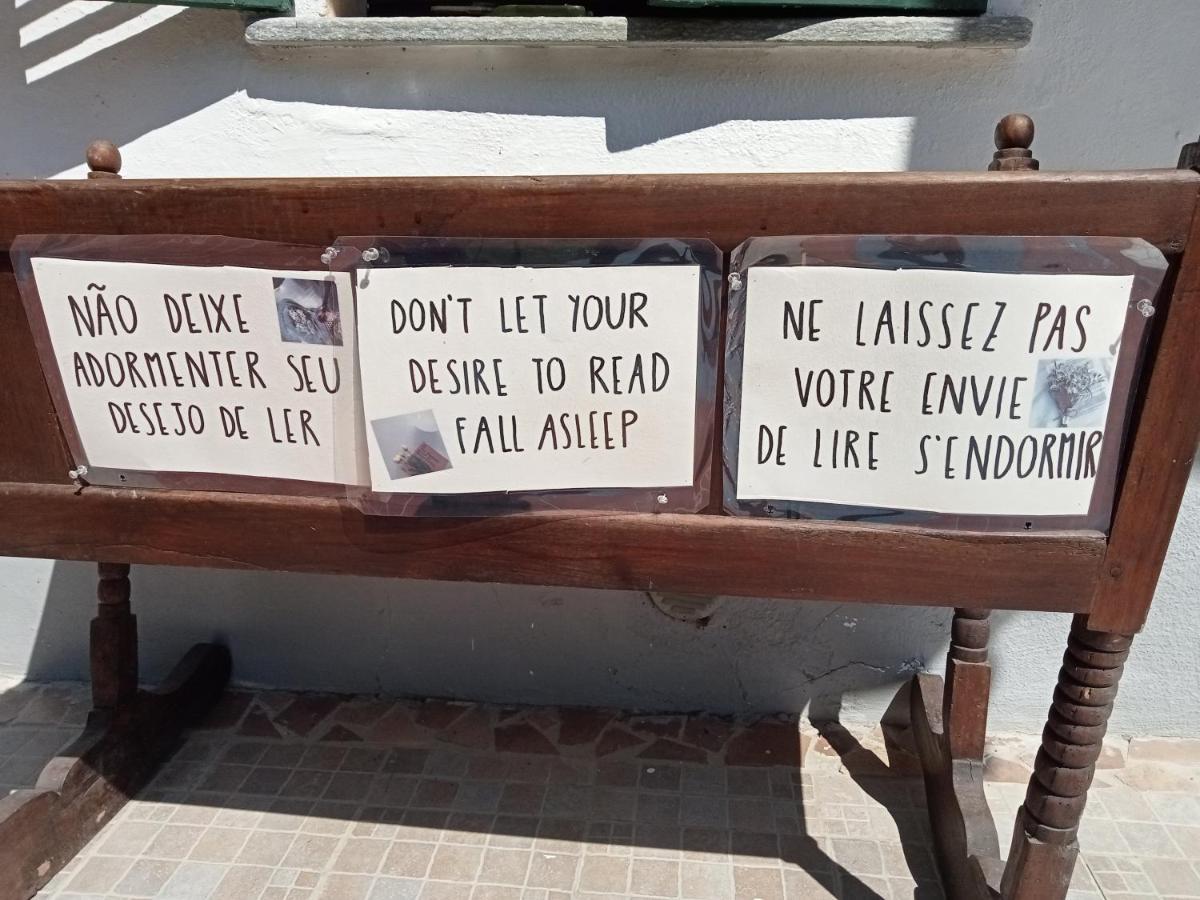 NÃO DEIXE
ADORMENTER SEU
DESEJO DE LER
DON'T LET YOUR
DESIRE TO READ
FALL ASLEEP
NE LAISSEZ PAS
VOTRE ENVIE
DE LIRE S'ENDORMIR